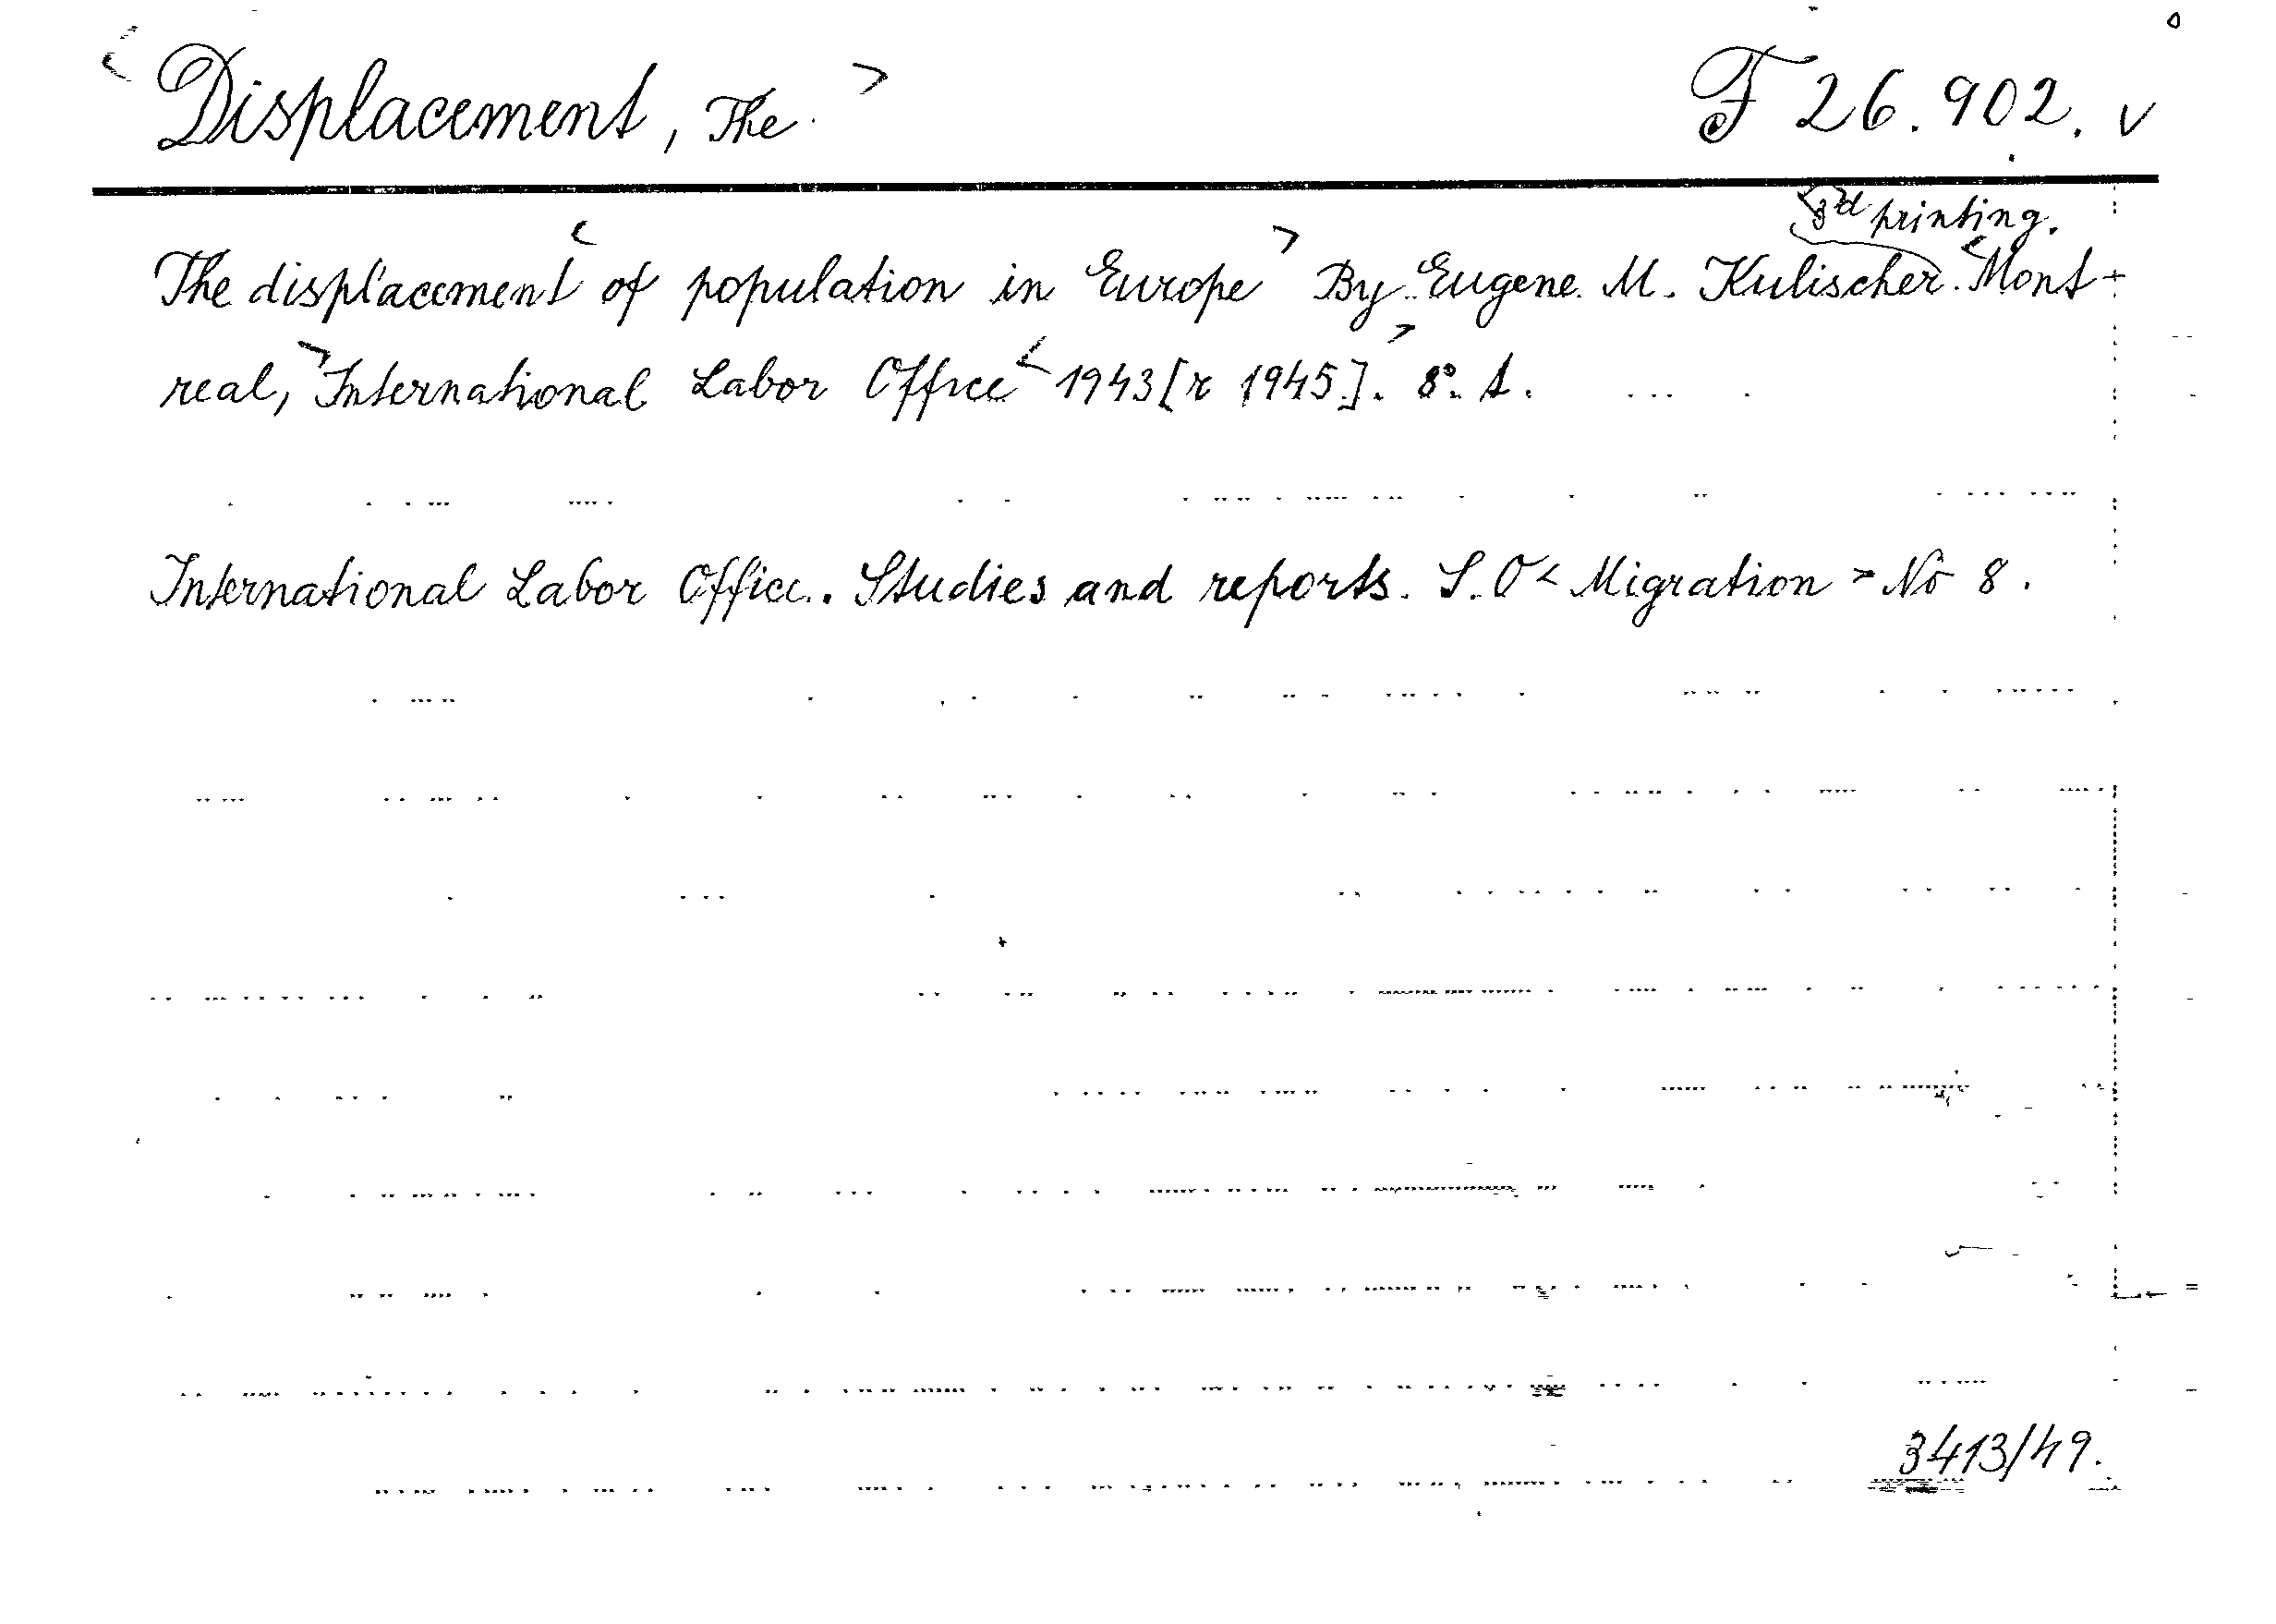 < Displacement, The > F 26.902. v
3rd printing.
The displacement < of population in Europe > By Eugene M. Kulischer. < Mont-
real, > International Labor Office < 1943 [r 1945]. > 8°. t.
International Labor Office. Studies and reports. S. O < Migration > No 8.
3413/49.